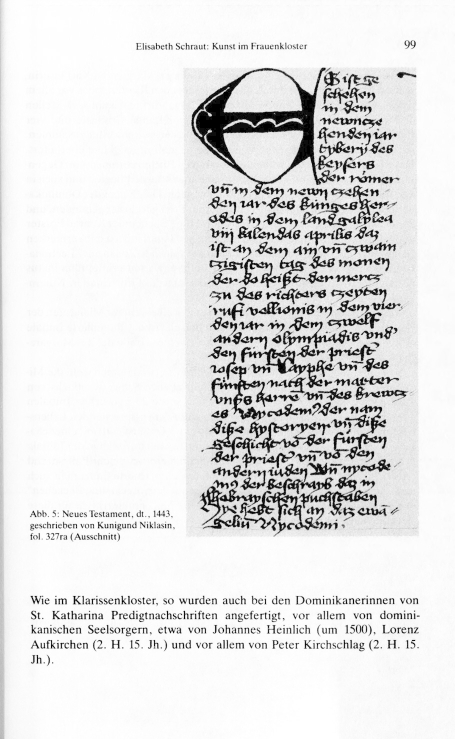 Elisabeth Schraut: Kunst im Frauenkloster 99
Es ist ge
schehen
in dem
newncze
henden iar
tyberÿ des
keysers
der römer
vn̄ in dem newn czehen
den iar des künges her
odes in dem land galylea
viij kalendas aprilis daz
ist an dem ain vn̄ czwain
czigisten tag des monen
der do heißt der mercz
zu des richters czeyten
rufi vellionis in dem vier
den iar in dem czwelf
andern olympiadis vnd
den fürsten der priest
iosep vn̄ Cayphe vn̄ des
fünften nach der marter
vnßs herre vn̄ des krewcz
es Nycodem⁹ der nam
diße hystoryen vn̄ diße
geschicht vō der fürsten
der priest vn̄ vō den
andern iuden Vn̄ nycode
m⁹ der beschraib daz in
hebrayschen puchstaben
Hye hebt sich an daz ewā
gelin Nycodemi
Abb. 5: Neues Testament, dt., 1443,
geschrieben von Kunigund Niklasin,
fol. 327ra (Ausschnitt)
Wie im Klarissenkloster, so wurden auch bei den Dominikanerinnen von
St. Katharina Predigtnachschriften angefertigt, vor allem von domini-
kanischen Seelsorgern, etwa von Johannes Heinlich (um 1500), Lorenz
Aufkirchen (2. H. 15. Jh.) und vor allem von Peter Kirchschlag (2. H. 15.
Jh.).